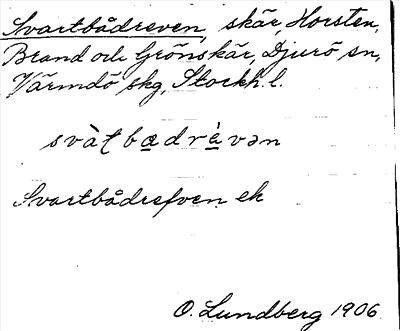 Svartbådreven, skär, Horsten,
Brand och Grönskär, Djurö sn,
Värmdö skg, Stockh. l.
svàt bad rè vən
Svartbådrefven ek
O. Lundberg 1906